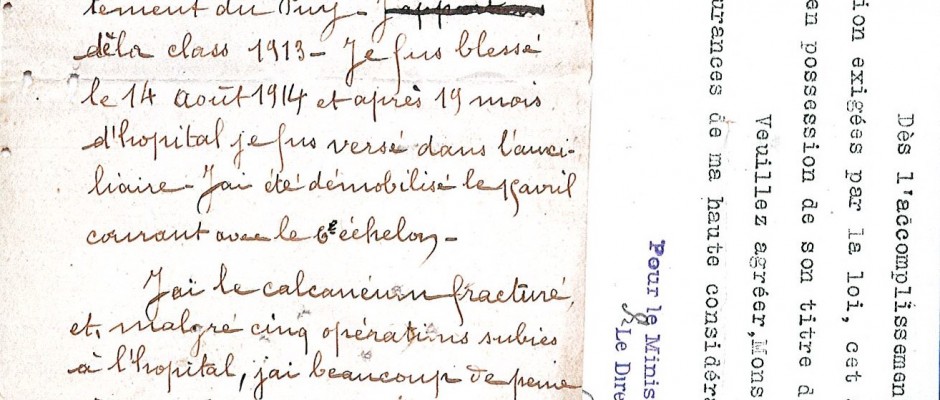 tement du Puy-
dèla class 1913 - Je fus blessé
le 14 août 1914 et après 19 mois
d'hopital je fus versé dans l'auxi-
liaire - J'ai été démobilisé le 15 avril
courant avec le 6e échelon -
J'ai le calcanéum fracturé,
et, malgré cinq opérations subies
à l'hopital, j'ai beaucoup de peine
Dès l'accomplissemen
ion exigées par la loi, cet
en possession de son titre d
Veuillez agréer, Mons
urances de ma haute considéra
Pour le Minis
Le Dire